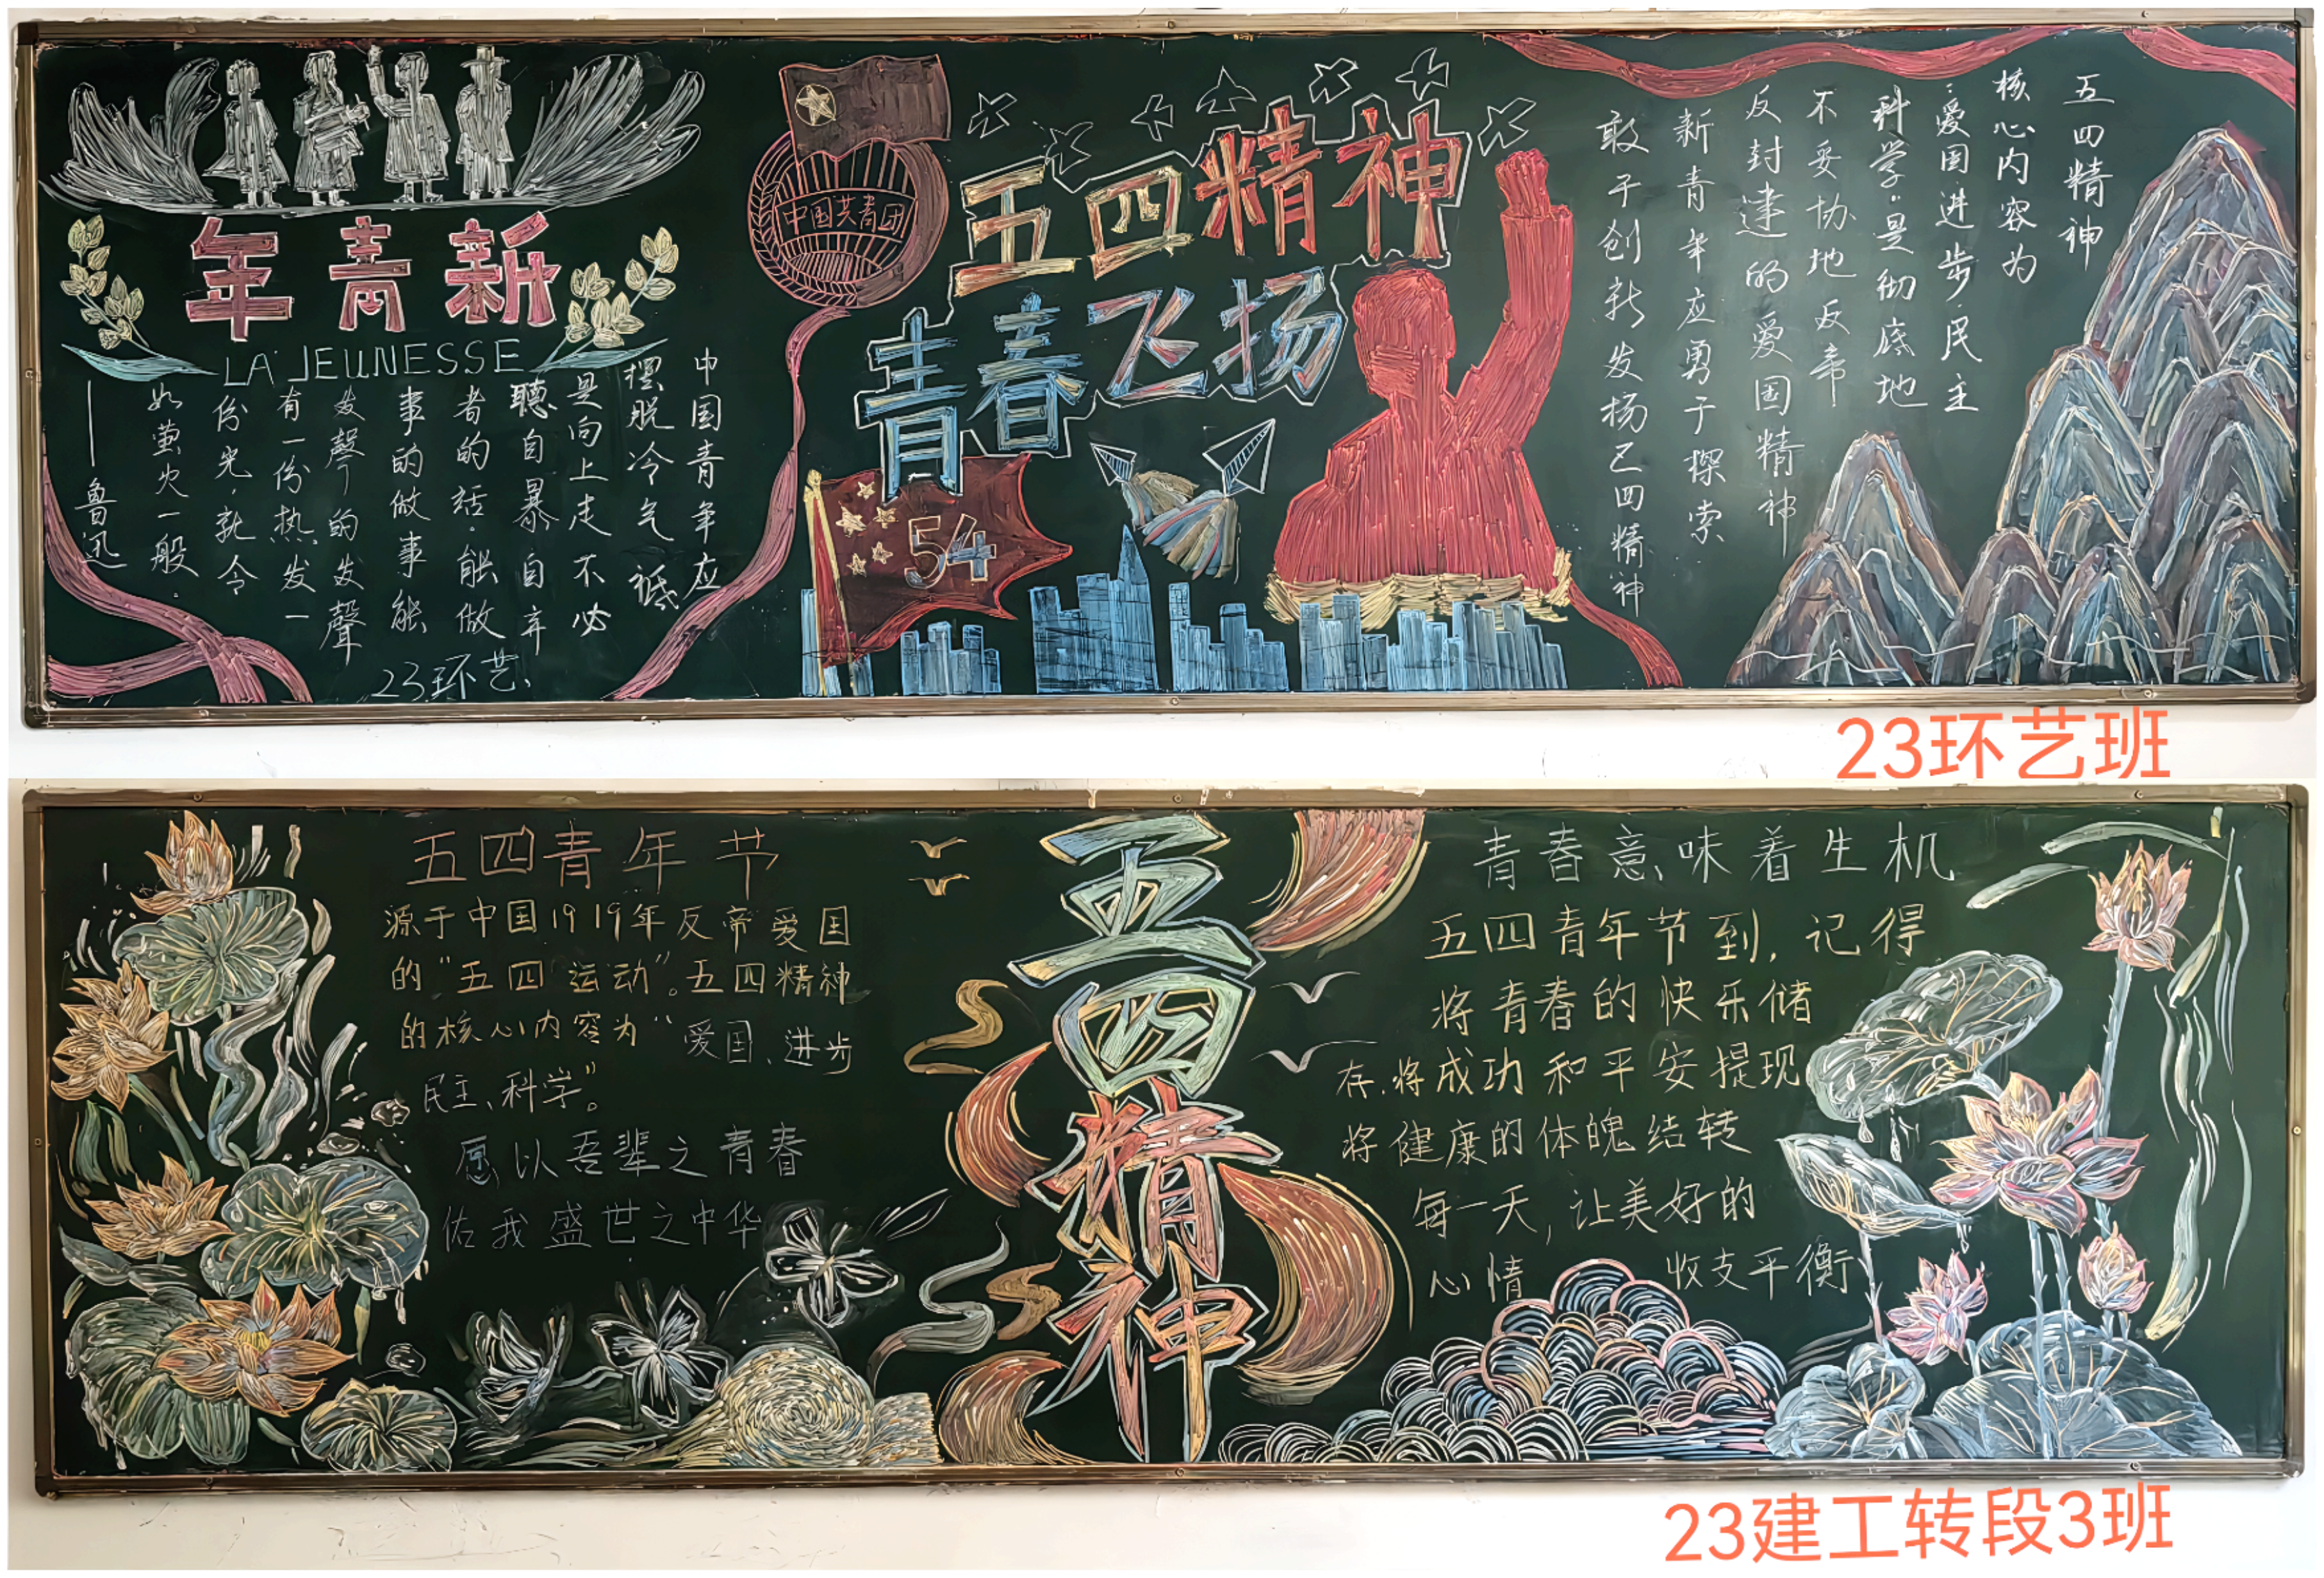 新青年
LA JEUNESSE
中国青年应
摆脱冷气祗
是向上走不必
聽自暴自弃
者的话.能做
事的做事能
发聲的发聲
有一份热.发一
份光.就令
如萤火一般.
——鲁迅
23环艺
中国共青团
五四精神
青春飞扬
54
五四精神
核心内容为
:爱国进步.民主
科学.是彻底地
不妥协地反帝
反封建的爱国精神
新青年应勇于探索
敢于创新发扬五四精神
23环艺班
五四青年节
源于中国1919年反帝爱国
的“五四运动”。五四精神
的核心内容为“爱国、进步
民主、科学”。
愿以吾辈之青春
佑我盛世之中华
五四精神
青春意味着生机
五四青年节到,记得
将青春的快乐储
存.将成功和平安提现
将健康的体魄结转
每一天,让美好的
心情 收支平衡
23建工转段3班